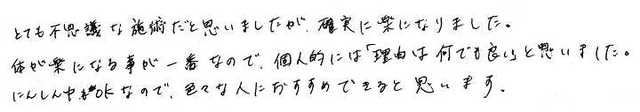 とても不思議な施術だと思いましたが、確実に楽になりました。
体が楽になる事が一番なので、個人的には「理由は何でも良い」と思いました。
にんしん中もOKなので、色々な人におすすめできると思います。